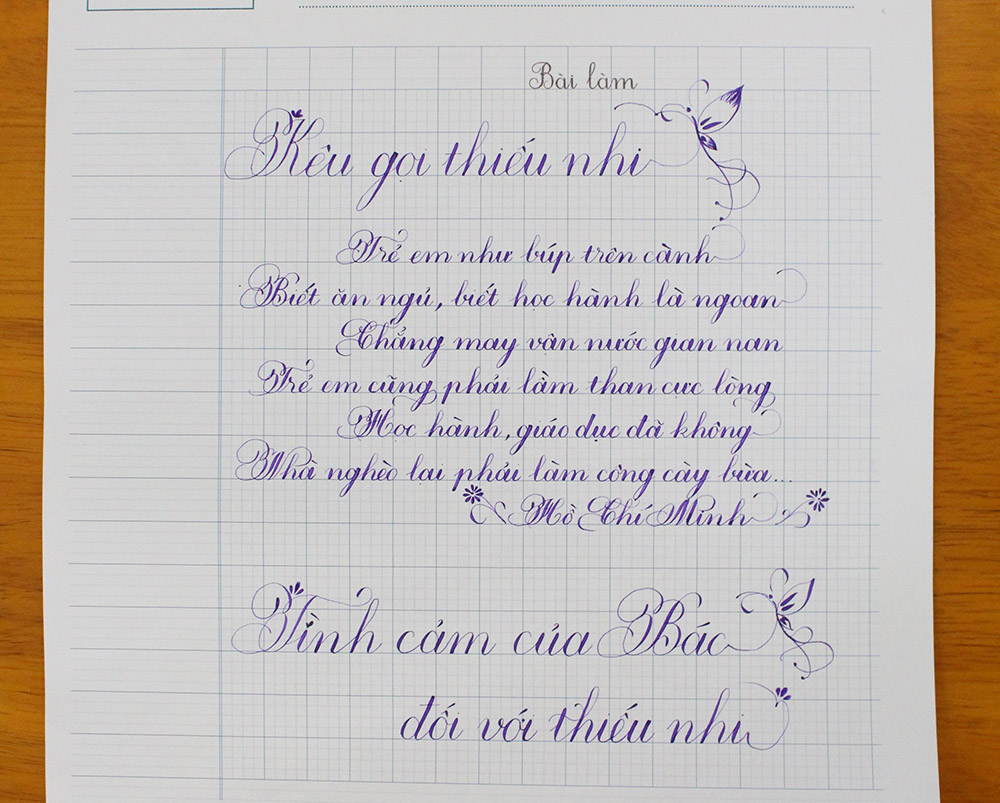 Bài làm
Kêu gọi thiếu nhi
Trẻ em như búp trên cành
Biết ăn ngủ, biết học hành là ngoan
Chẳng may vận nước gian nan
Trẻ em cũng phải lầm than cực lòng
Học hành, giáo dục đã không
Nhà nghèo lại phải làm công cày bừa...
Hồ Chí Minh
Tình cảm của Bác
đối với thiếu nhi